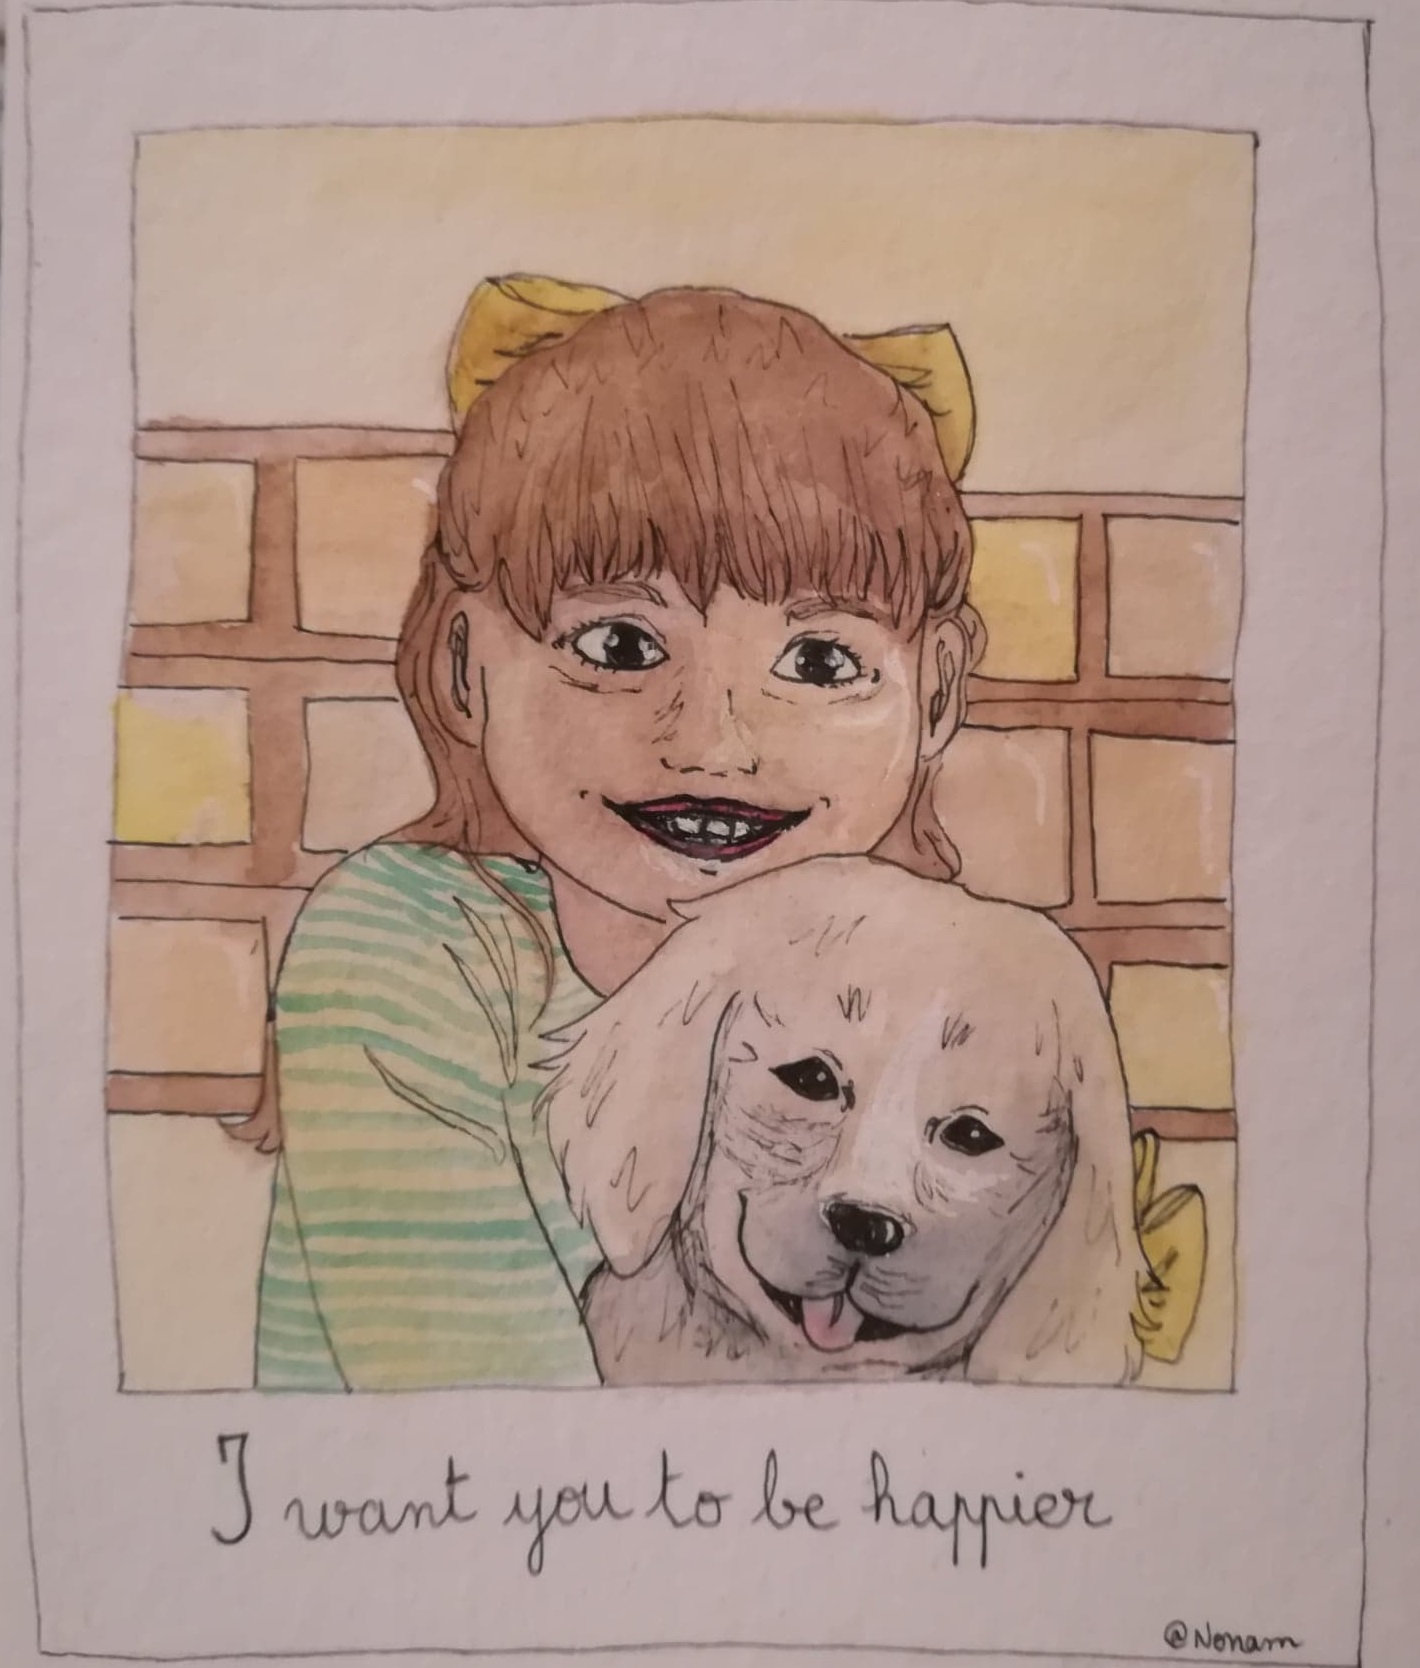 I want you to be happier
@Nonam